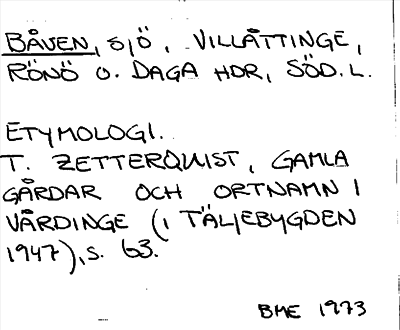 BÅVEN, SJÖ, VILLÅTTINGE,
RÖNÖ O. DAGA HDR, SÖD.L.
ETYMOLOGI.
T. ZETTERQUIST, GAMLA
GÅRDAR OCH ORTNAMN I
VÅRDINGE (I TÄLJEBYGDEN
1947), S. 63.
BME 1973